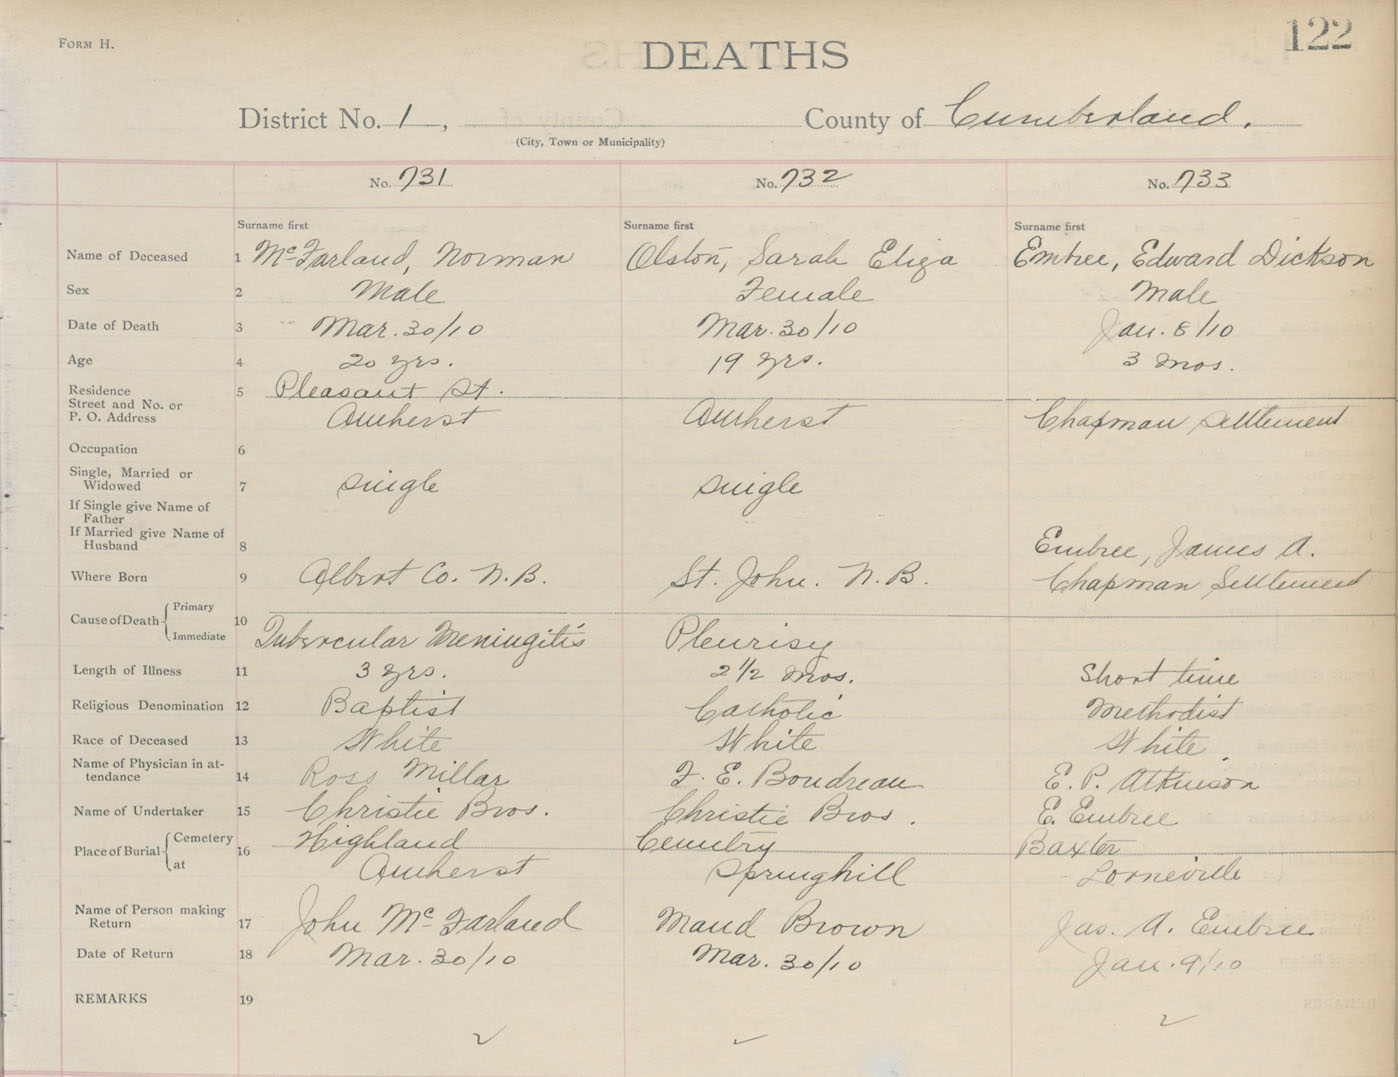 FORM H.
122
DEATHS
District No. 1, County of Cumberland.
(City, Town or Municipality)
No. 731 No. 732 No. 733
Surname first Surname first Surname first
Name of Deceased 1 McFarland, Norman Olston, Sarah Eliza Embree, Edward Dickson
Sex 2 Male Female Male
Date of Death 3 Mar. 30/10 Mar. 30/10 Jan. 8/10
Age 4 20 yrs. 19 yrs. 3 mos.
Residence 5 Pleasant St.
Street and No. or
P. O. Address Amherst Amherst Chapman Settlement
Occupation 6
Single, Married or
Widowed 7 Single Single
If Single give Name of
Father
If Married give Name of
Husband 8 Embree, James A.
Where Born 9 Albert Co. N.B. St. John. N.B. Chapman Settlement
Cause of Death Primary 10
Immediate Tubercular Meningitis Pleurisy
Length of Illness 11 3 yrs. 2 1/2 mos. Short time
Religious Denomination 12 Baptist Catholic Methodist
Race of Deceased 13 White White White
Name of Physician in at-
tendance 14 Ross Millar F. E. Boudreau E. P. Atkinson
Name of Undertaker 15 Christie Bros. Christie Bros. E. Embree
Place of Burial Cemetery 16 Highland Cemetry Baxter
at Amherst Springhill Lorneville
Name of Person making
Return 17 John McFarland Maud Brown Jas. A. Embree
Date of Return 18 Mar. 30/10 Mar. 30/10 Jan. 9/10
REMARKS 19